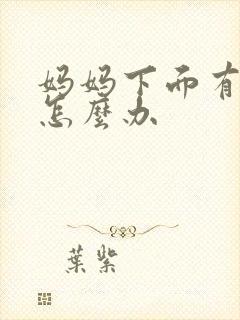 妈妈下而有
怎麼办
葉紫